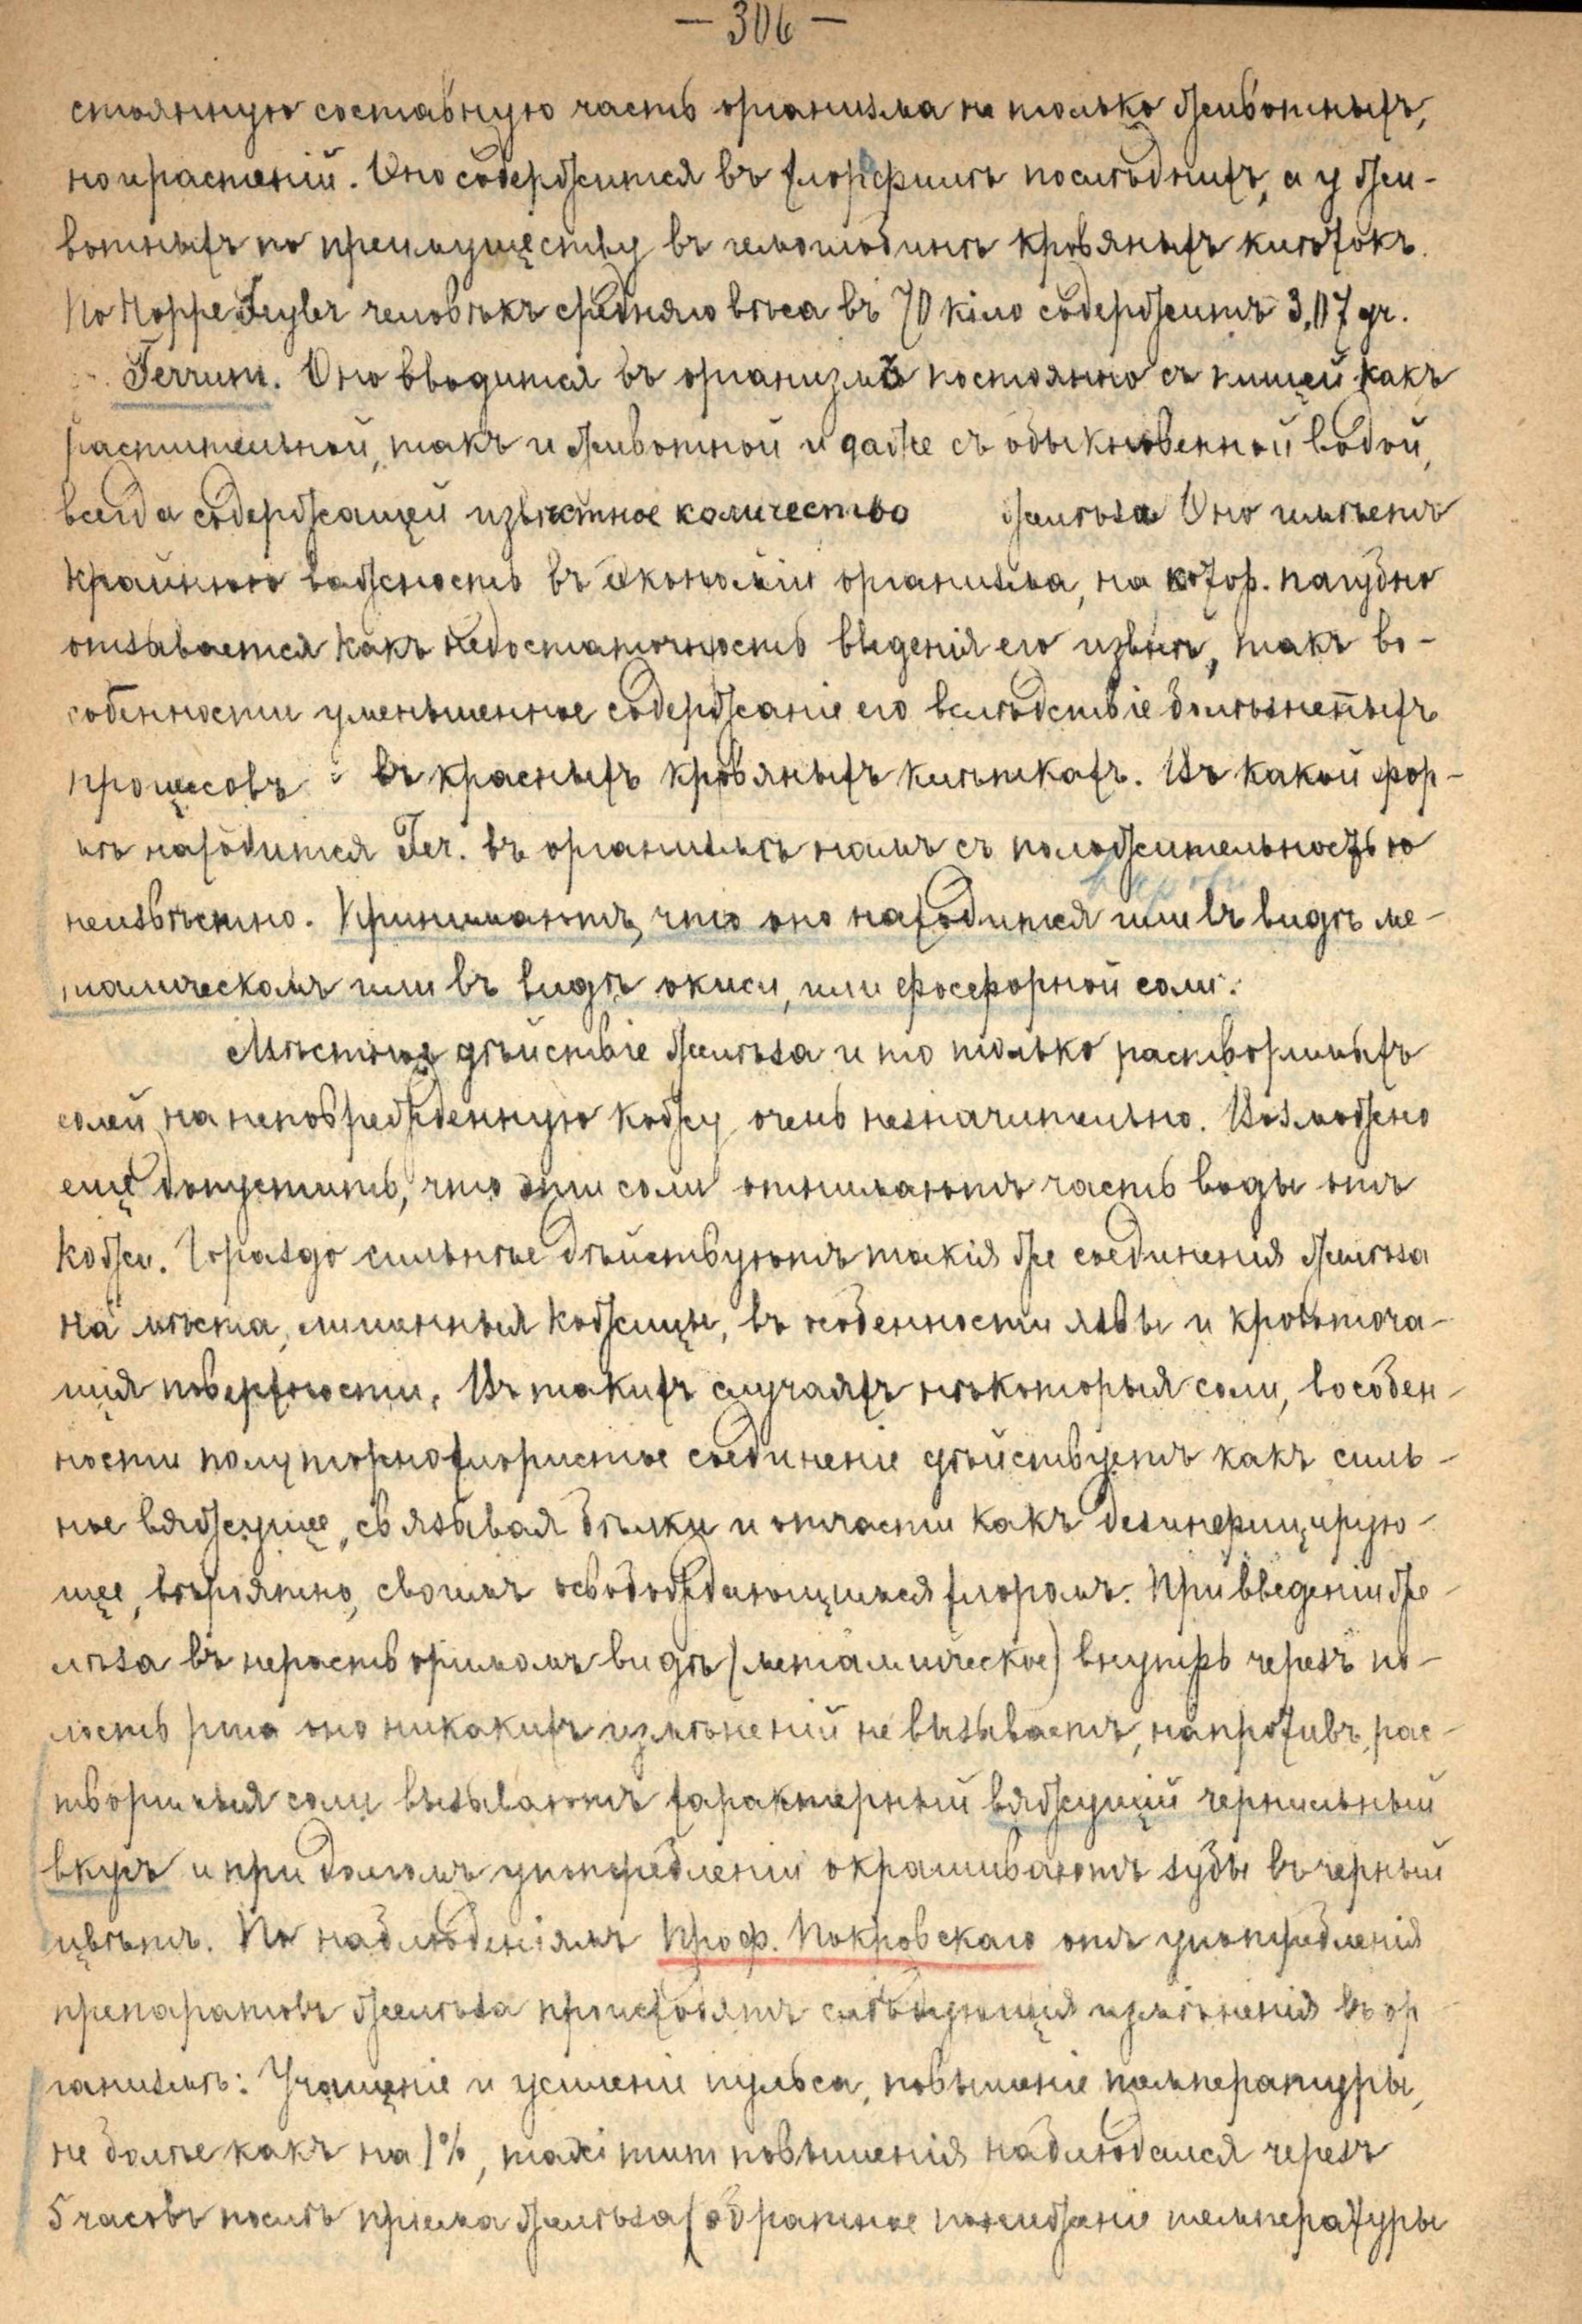 — 306 —
стоянную составную часть организма не только животныхъ,
но и растеній. Оно содержится въ хлорофилѣ послѣднихъ, а у жи-
вотныхъ по преимуществу въ гемоглобинѣ кровяныхъ клѣтокъ.
По Hoppe Seyler человѣкъ средняго вѣса въ 70 кіло содержитъ 3,07 gr.
Ferrum. Оно вводится въ организмъ постоянно съ пищей какъ
растительной, такъ и животной и даже съ обыкновенной водой,
всегда содержащей извѣстное количество желѣза Оно имѣетъ
крайнюю важность въ экономіи организма, на котор. пагубно
отзывается какъ недостаточность введенія его извнѣ, такъ во-
собенности уменьшенное содержаніе его вслѣдствіе болѣзненныхъ
процесовъ въ красныхъ кровяныхъ клѣткахъ. Въ какой фор-
мѣ находится Fer. въ организмѣ намъ съ положительностью
неизвѣстно. Принимаютъ, что оно находится въ крови или въ видѣ ме-
таллическомъ или въ видѣ окиси, или фосфорной соли.
Мѣстное дѣйствіе желѣза и то только растворимыхъ
солей на неповрежденную кожу очень незначительно. Возможно
ещё допустить, что эти соли отнимаютъ часть воды отъ
кожи. Гораздо сильнѣе дѣйствуютъ такія же соединенія желѣза
на мѣста, лишенныя кожицы, въ особенности язвы и кровоточа-
щія поверхности. Въ такихъ случаяхъ нѣкоторыя соли, вособен-
ности полуторнохлористое соединеніе дѣйствуетъ какъ силь-
ное вяжущее, связывая бѣлки и отчасти какъ дезинфицирую-
щее, вѣроятно, своимъ освобождающимся хлоромъ. При введеніи же-
лѣза въ нерастворимомъ видѣ (металлическое) внутрь черезъ по-
лость рта оно никакихъ измѣненій не вызываетъ, напротивъ, рас-
творимыя соли вызываютъ характерный вяжущій чернильный
вкусъ и при долгомъ употребленіи окрашиваютъ зубы въ черный
цвѣтъ. По наблюденіямъ Проф. Покровскаго отъ употребленія
препаратовъ желѣза происходятъ слѣдующія измѣненія въ ор-
ганизмѣ: Учащеніе и усиленіе пульса, повышеніе температуры,
не болѣе какъ на 1%, maximum повышенія наблюдался черезъ
5 часовъ послѣ пріема желѣза (обратное пониженіе температуры